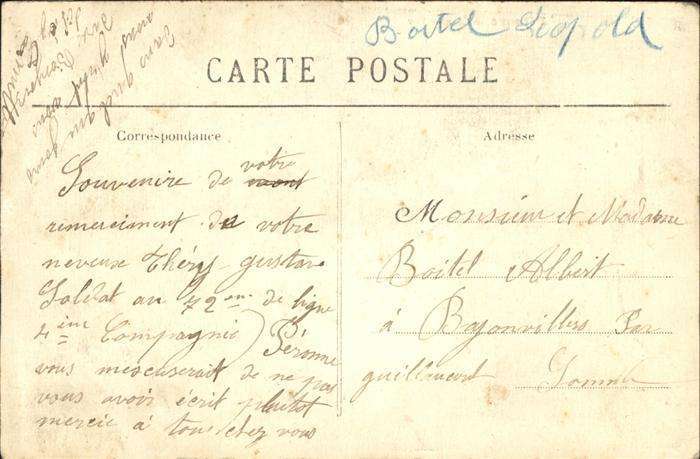 Boitel Léopold
CARTE POSTALE
Correspondance
Adresse
Souvenire de votre
remerciment de votre
neveux Théry gustave
Soldat au 72eme de ligne
4ième Compagnie) Péronne
vous mescuserait de ne pas
vous avois écrit plutot
mercie à tous chez vous
Monsieur et Madame
Boitel Albert
à Bayonvillers Par
guillaucourt Somme